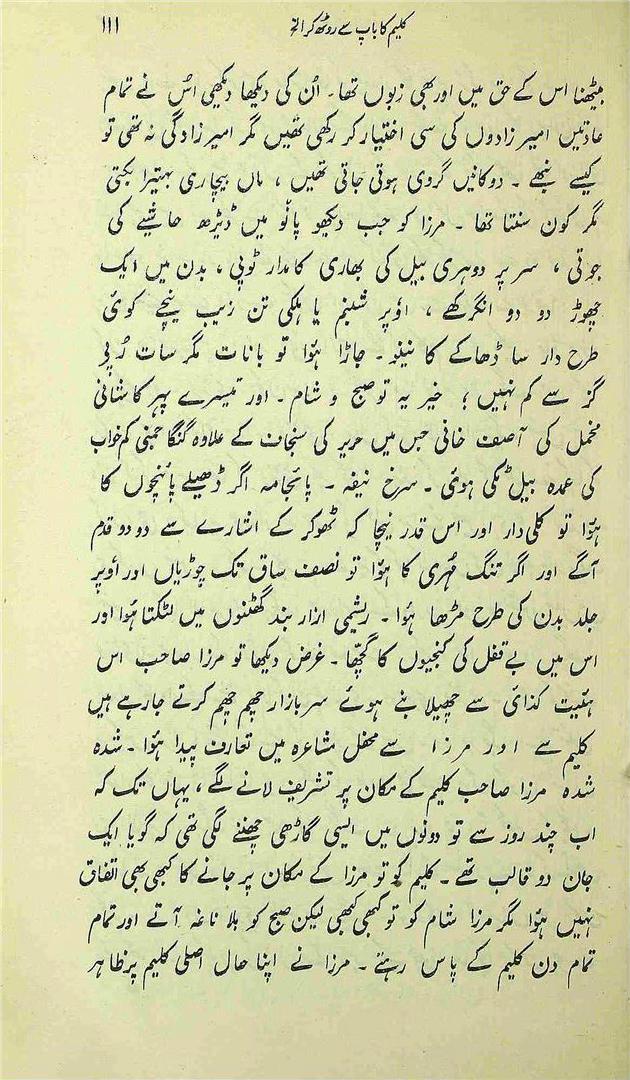 کلیم کا باپ سے روٹھ کر الخ ۱۱۱
بیٹھنا اس کے حق میں اور بھی زبوں تھا۔ اُن کی دیکھا دیکھی اُس نے تمام
عادتیں امیر زادوں کی سی اختیار کر رکھی تھیں مگر امیر زادگی نہ تھی تو
کیسے نبھے ۔ دوکانیں گروی ہوتی جاتی تھیں ، ماں بیچاری بہتیرا بکتی
مگر کون سنتا تھا ۔ مرزا کو جب دیکھو پانؤ میں ڈیڑھ حاشیے کی
جوتی ، سر پر دوہری بیل کی بھاری کامدار ٹوپی ، بدن میں ایک
چھوڑ دو دو انگرکھے ، اوٗپر شبنم یا ہلکی تن زیب نیچے کوئی
طرح دار سا ڈھاکے کا نینو ۔ جاڑا ہؤا تو بانات مگر سات رُپی
گز سے کم نہیں ؛ خیر یہ تو صبح و شام ۔ اور تیسرے پہر کاشانی
مخمل کی آصف خانی جس میں حریر کی سنجاف کے علاوہ گنگا جمنی کم خواب
کی عمدہ بیل ٹکی ہوئی ۔ سرخ نیفہ ۔ پائجامہ اگر ڈھیلے پائنچوں کا
ہؤا تو کلی دار اور اس قدر نیچا کہ ٹھوکر کے اشارے سے دو دو قدم
آگے اور اگر تنگ مُہری کا ہؤا تو نصف ساق تک چوڑیاں اور اوٗپر
جلد بدن کی طرح مڑھا ہؤا ۔ ریشمی ازار بند گھٹنوں میں لٹکتا ہؤا اور
اس میں بے قفل کی کنجیوں کا گچھّا ۔ غرض دیکھا تو مرزا صاحب اس
ہئیت کذائی سے چھیلا بنے ہوئے سر بازار چھم چھم کرتے جا رہے ہیں
کلیم سے اور مرزا سے محفل مشاعرہ میں تعارف پیدا ہؤا ۔ شدہ
شدہ مرزا صاحب کلیم کے مکان پر تشریف لانے لگے ، یہاں تک کہ
اب چند روز سے تو دونوں میں ایسی گاڑھی چھننے لگی تھی کہ گویا ایک
جان دو قالب تھے ۔ کلیم کو تو مرزا کے مکان پر جانے کا کبھی بھی اتفاق
نہیں ہؤا مگر مرزا شام کو تو کبھی کبھی لیکن صبح کو بلا ناغہ آتے اور تمام
تمام دن کلیم کے پاس رہتے ۔ مرزا نے اپنا حال اصلی کلیم پر ظاہر